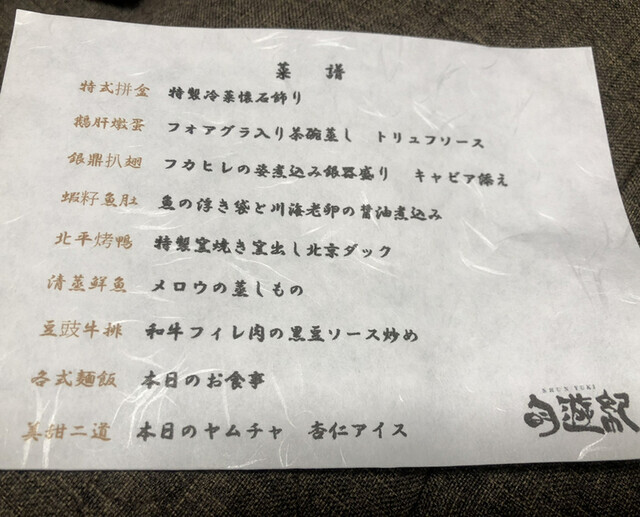 菜譜
特式拼盆 特製冷菜懐石飾り
鵝肝燉蛋 フォアグラ入り茶碗蒸し トリュフソース
銀鼎扒翅 フカヒレの姿煮込み銀器盛り キャビア添え
蝦籽魚肚 魚の浮き袋と川海老卵の醤油煮込み
北平烤鴨 特製窯焼き窯出し北京ダック
清蒸鮮魚 メロウの蒸しもの
豆豉牛排 和牛フィレ肉の黒豆ソース炒め
各式麺飯 本日のお食事
美甜二道 本日のヤムチャ 杏仁アイス
SHUN YUKI
旬遊紀